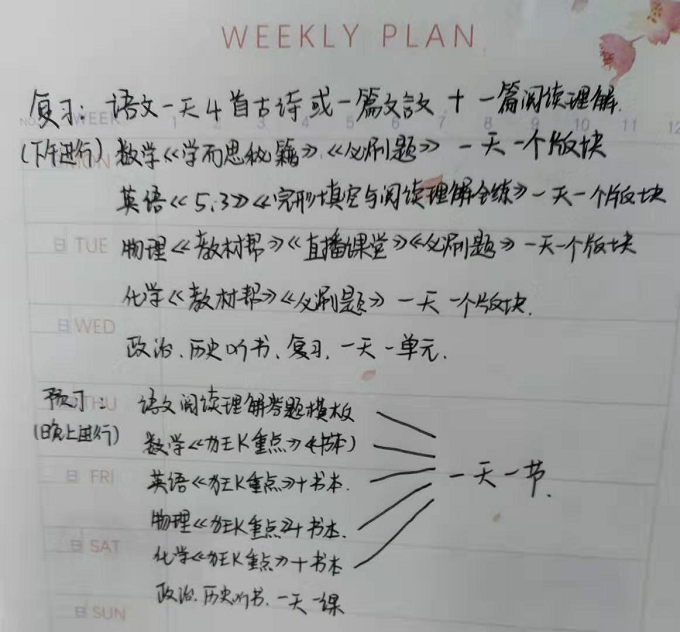 WEEKLY PLAN
复习: 语文一天4首古诗或一篇文言文 + 一篇阅读理解.
NO. WEEK 1 2 3 4 5 6 7 8 9 10 11 12
(下午进行) 数学《学而思秘籍》《必刷题》 一天一个版块
MON
英语《5.3》《完形填空与阅读理解全练》一天一个版块
日 TUE 物理《教材帮》《直播课堂》《必刷题》 一天一个版块
化学《教材帮》《必刷题》 一天一个版块.
日 WED
政治.历史听书.复习.一天一单元.
预习: 语文阅读理解答题模板
THU
(晚上进行) 数学《狂K重点》(书本)
日 FRI 英语《狂K重点》+书本. 一天一节.
物理《狂K重点》+书本.
日 SAT 化学《狂K重点》+书本
政治.历史听书.一天一课
日 SUN